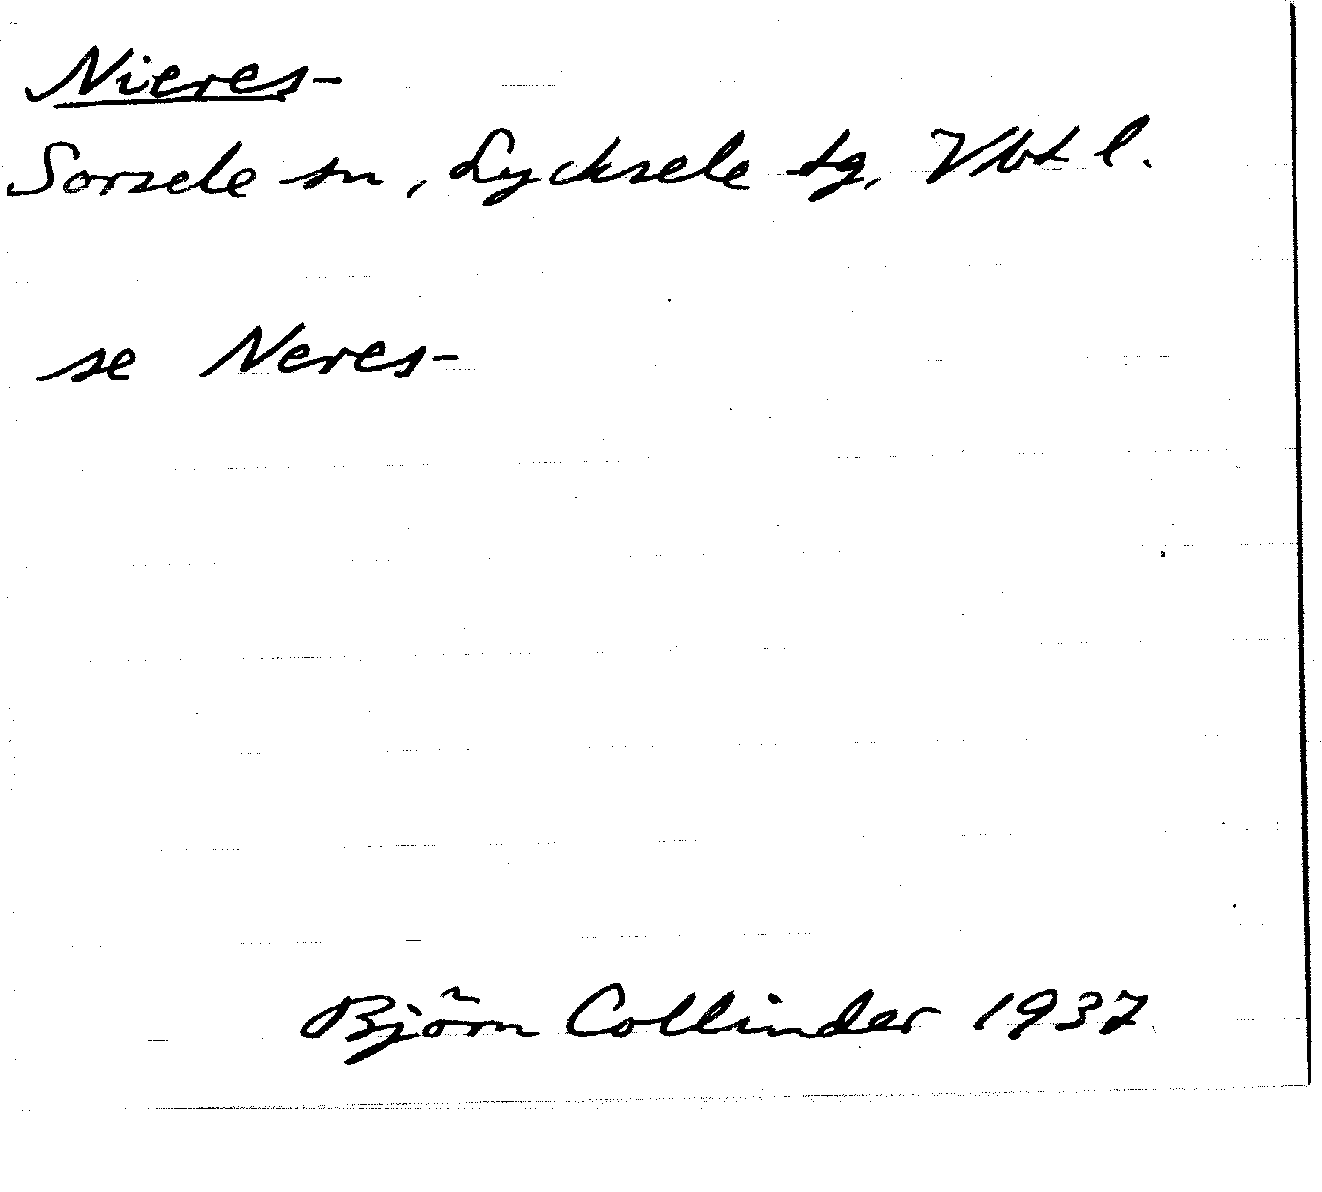 Nieres-
Sorsele sn, Lycksele tg, Vbtl.
se Neres-
Björn Collinder 1937